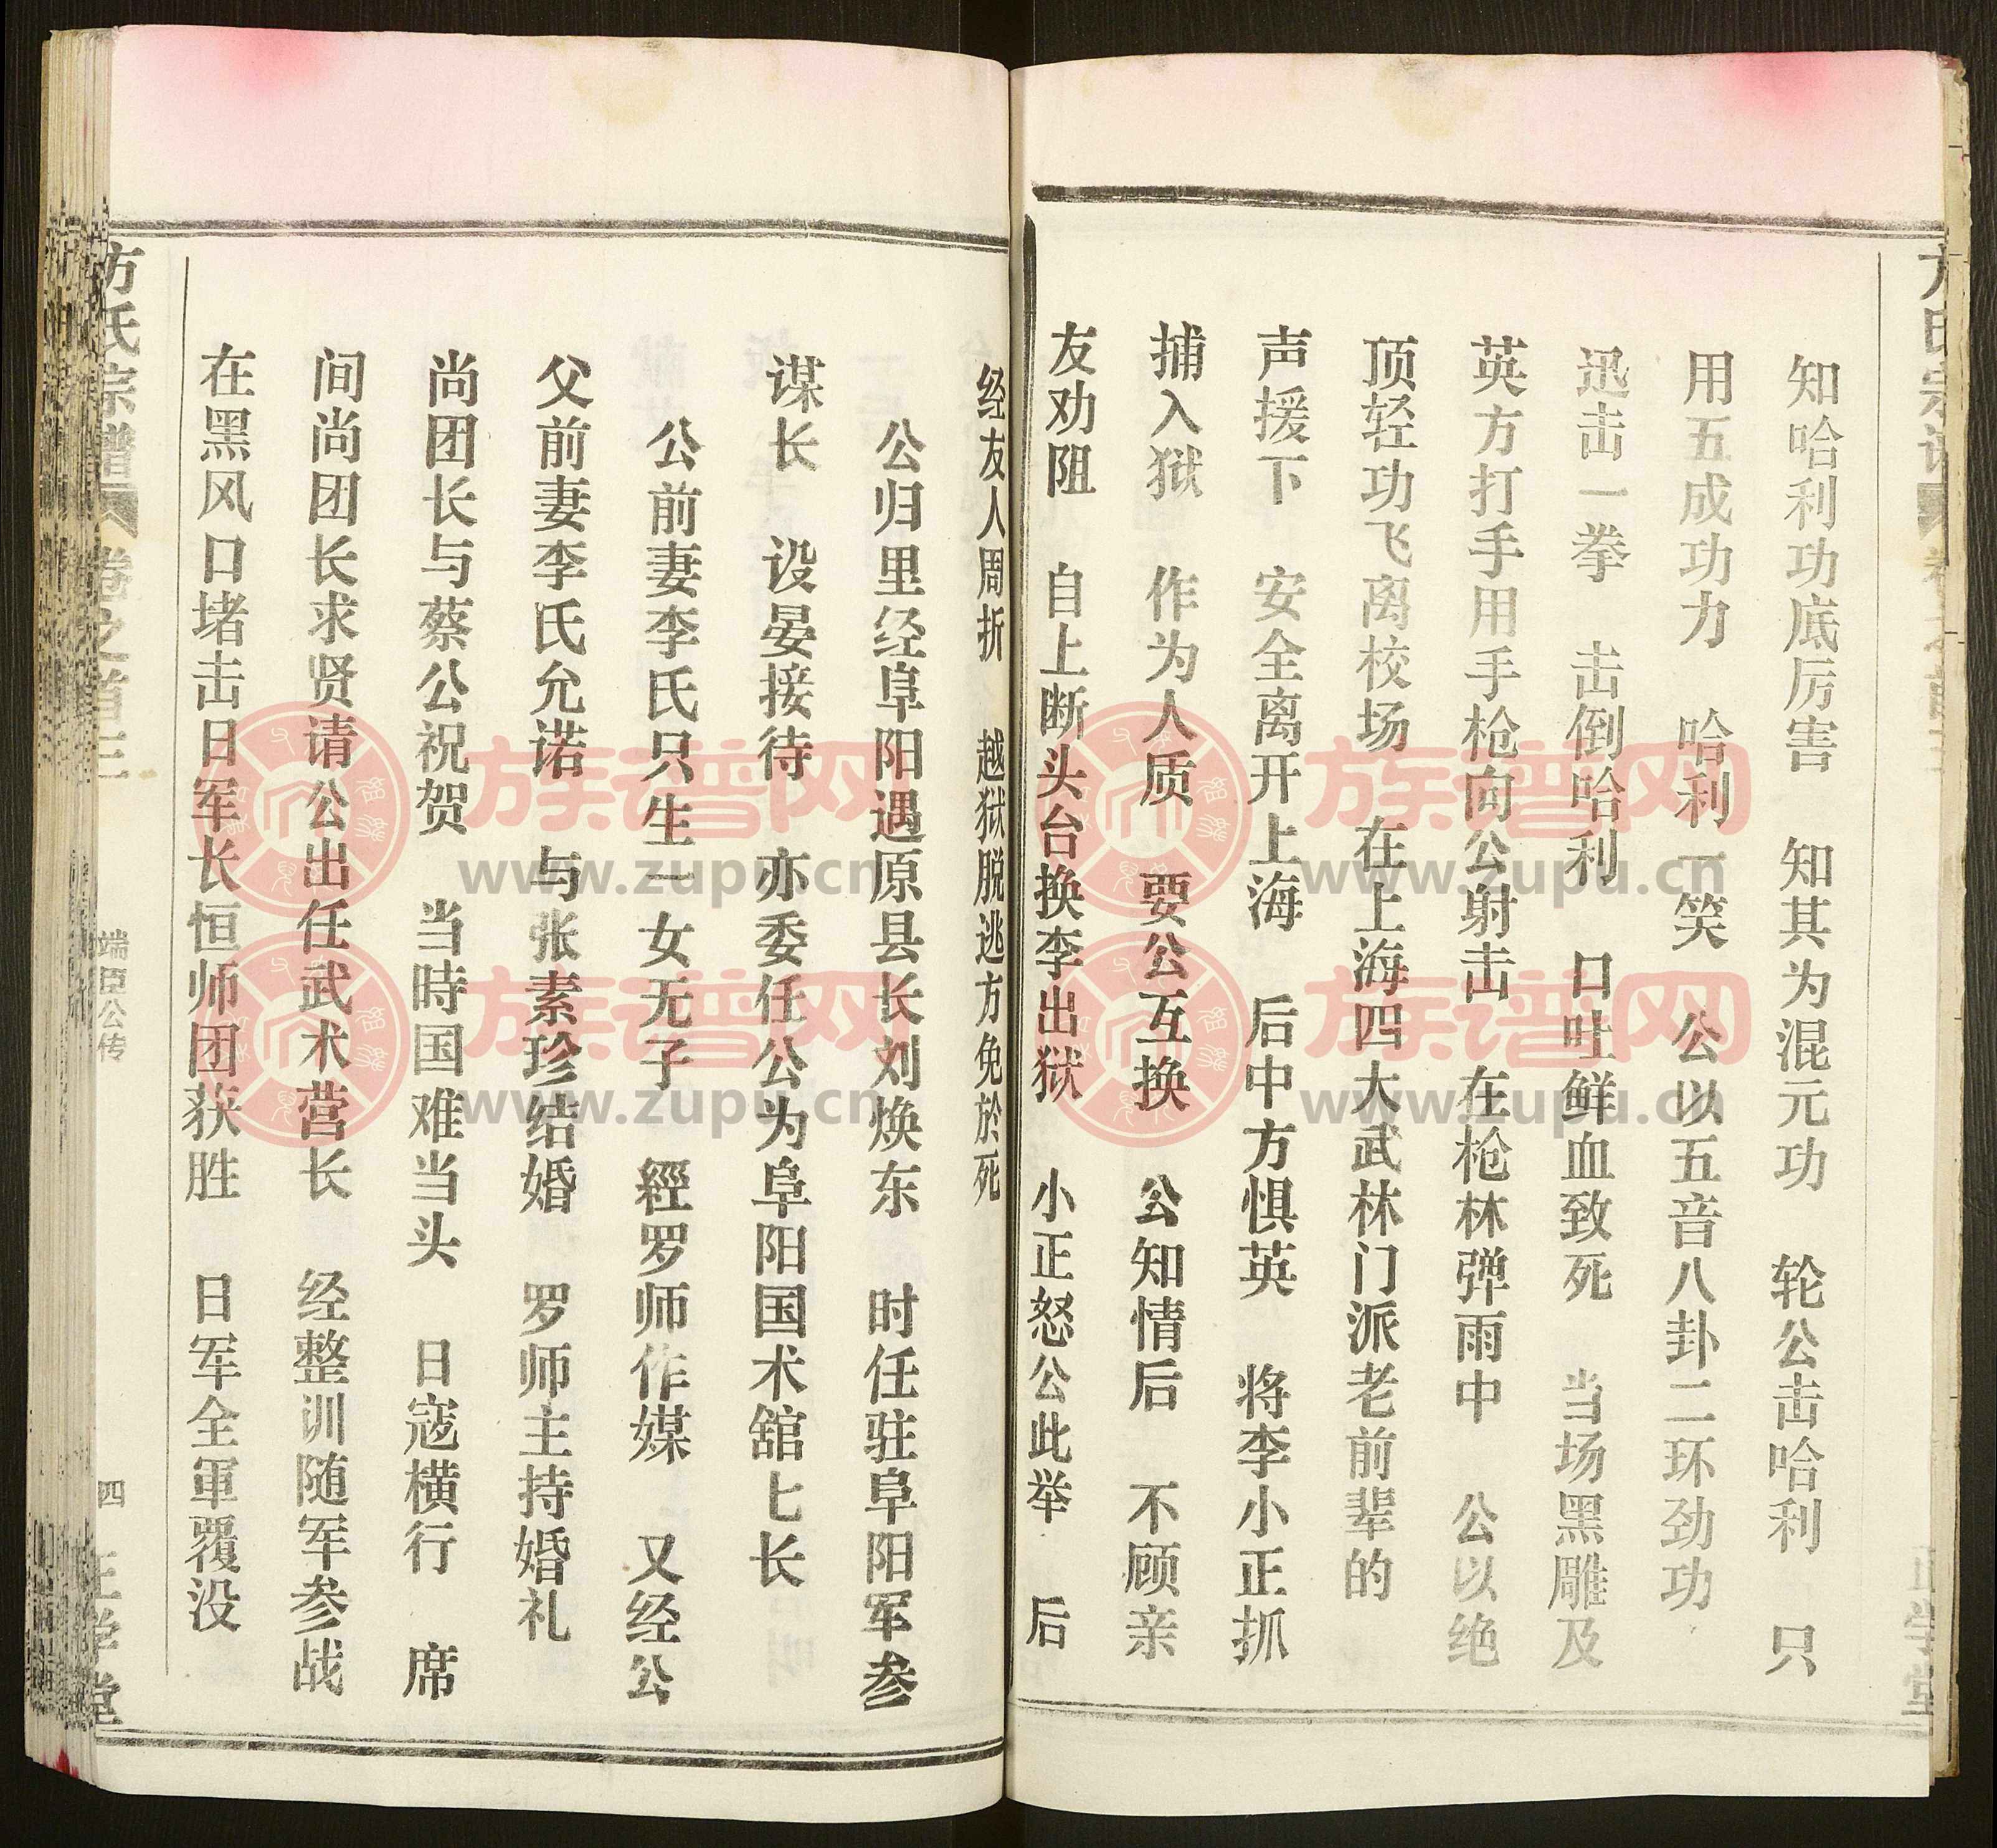 知哈利功底厉害　知其为混元功　轮公击哈利　只
用五成功力　哈利一笑　公以五音八卦二环劲功
迅击一拳　击倒哈利　口吐鲜血致死　当场黑雕及
英方打手用手枪向公射击　在枪林弹雨中　公以绝
顶轻功飞离校场　在上海四大武林门派老前辈的
声援下　安全离开上海　后中方惧英　将李小正抓
捕入狱　作为人质　要公互换　公知情后　不顾亲
友劝阻　自上断头台换李出狱　小正怒公此举　后
经友人周折　越狱脱逃方免於死
公归里经阜阳遇原县长刘焕东　时任驻阜阳军参
谋长　设晏接待　亦委任公为阜阳国术舘七长
公前妻李氏只生一女无子　經罗师作媒　又经公
父前妻李氏允诺　与张素珍结婚　罗师主持婚礼
尚团长与蔡公祝贺　当時国难当头　日寇横行　席
间尚团长求贤请公出任武术营长　经整训随军参战
在黑风口堵击日军长恒师团获胜　日军全軍覆没
方氏宗譜
卷之首三
端臣公传
四
正学堂
族谱网
www.zupu.cn
族谱网
www.zupu.cn
族谱网
www.zupu.cn
族谱网
www.zupu.cn